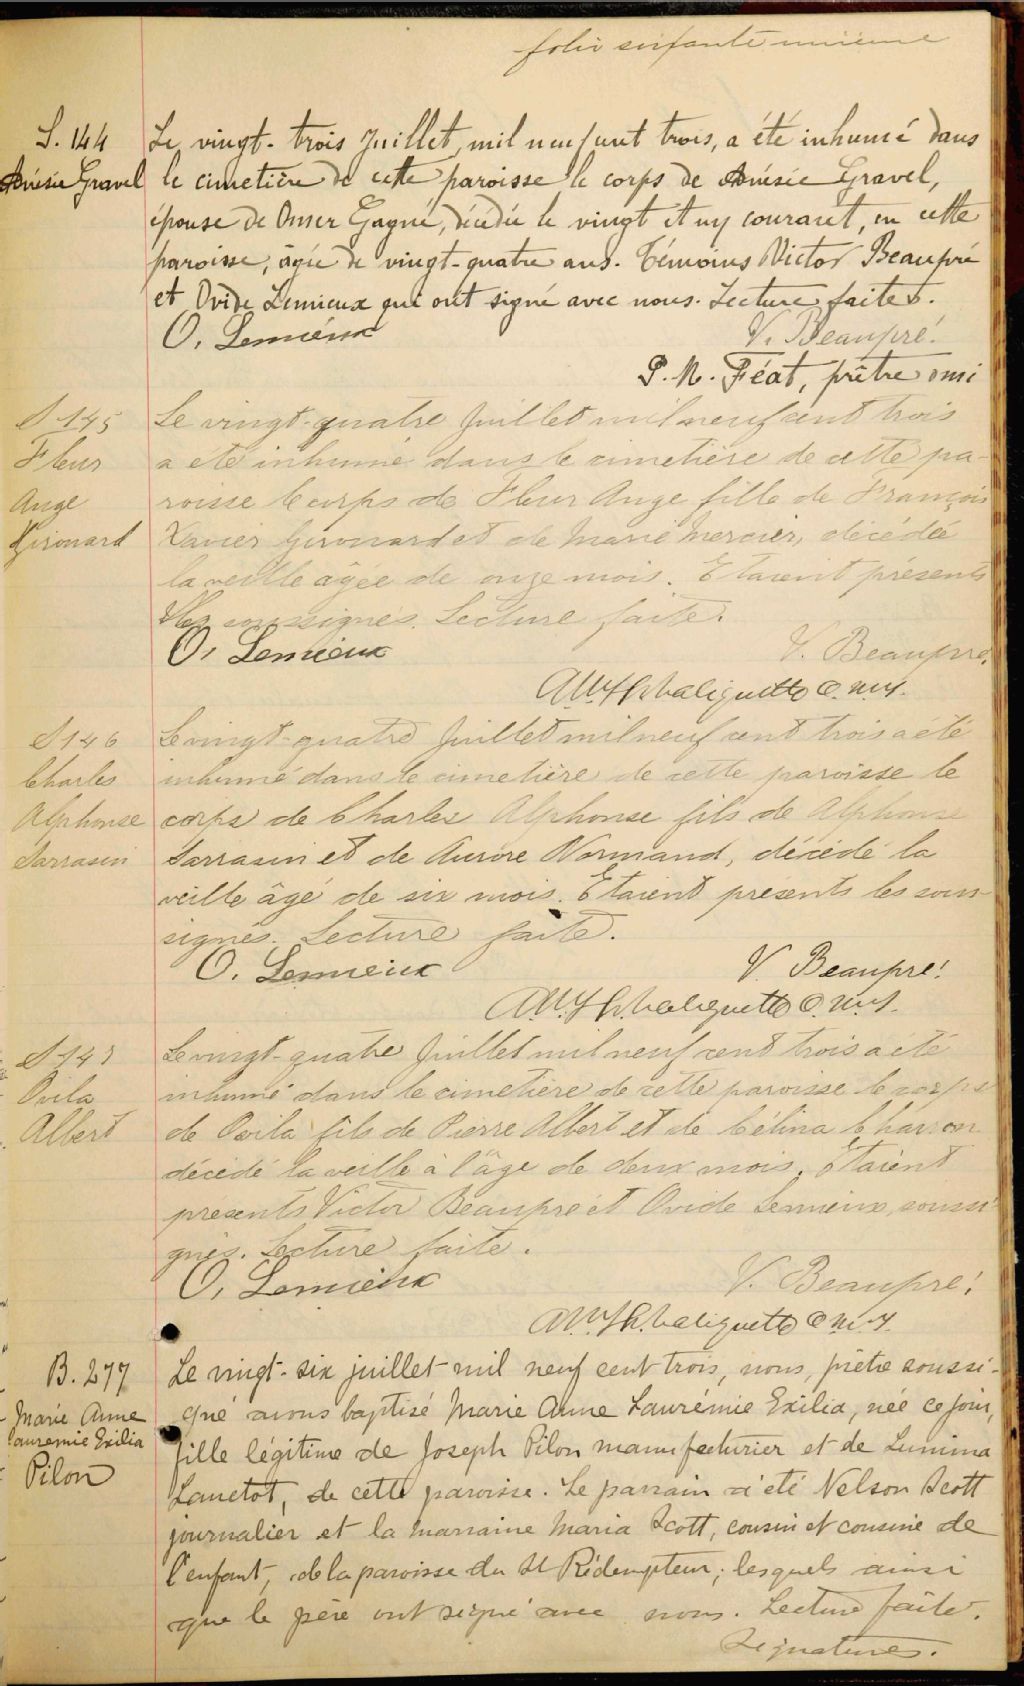 folio soixante unième
S. 144
Anésie Gravel
Le vingt-trois Juillet, mil neuf cent trois, a été inhumé dans
le cimetière de cette paroisse le corps de Anésie Gravel,
épouse de Omer Gagné, décédée le vingt et un courant, en cette
paroisse, âgée de vingt-quatre ans. Témoins Victor Beaupré
et Ovide Lemieux qui ont signé avec nous. Lecture faite.
O. Lemieux V. Beaupré.
P. M. Féat, prêtre omi
S 145
Fleur
Ange
Girouard
Le vingt-quatre Juillet mil neuf cent trois
a ete inhumé dans le cimetière de cette pa-
roisse le corps de Fleur Ange fille de François
Xavier Girouard et de Marie Mercier, décédée
la veille âgée de onze mois. Etaient présents
les soussignés. Lecture faite.
O. Lemieux V. Beaupré.
Valiquette O.M.I.
S 146
Charles
Alphonse
Sarrasin
Le vingt-quatre Juillet mil neuf cent trois a été
inhumé dans le cimetière de cette paroisse le
corps de Charles Alphonse fils de Alphonse
Sarrasin et de Aurore Normand, décédé la
veille âgé de six mois. Etaient présents les sous-
signés. Lecture faite.
O. Lemieux V Beaupré!
Valiquette O.M.I.
S 147
Ovila
Albert
Le vingt-quatre Juillet mil neuf cent trois a été
inhumé dans le cimetière de cette paroisse le corps
de Ovila fils de Pierre Albert et de Célina Charron
décédé la veille à l'âge de deux mois. Etaient
présents Victor Beaupré et Ovide Lemieux, soussi-
gnés. Lecture faite.
O. Lemieux V. Beaupré!
Valiquette O.M.I.
B. 277
Marie Anne
Laurémie Exilia
Pilon
Le vingt-six juillet mil neuf cent trois, nous, prêtre soussi-
gné avons baptisé Marie Anne Laurémie Exilia, née ce jour,
fille légitime de Joseph Pilon manufacturier et de Lumina
Lanctot, de cette paroisse. Le parrain a été Nelson Scott
journalier et la marraine Maria Scott, cousin et cousine de
l'enfant, de la paroisse du St Rédempteur; lesquels ainsi
que le père ont signé avec nous. Lecture faite.
Signatures.